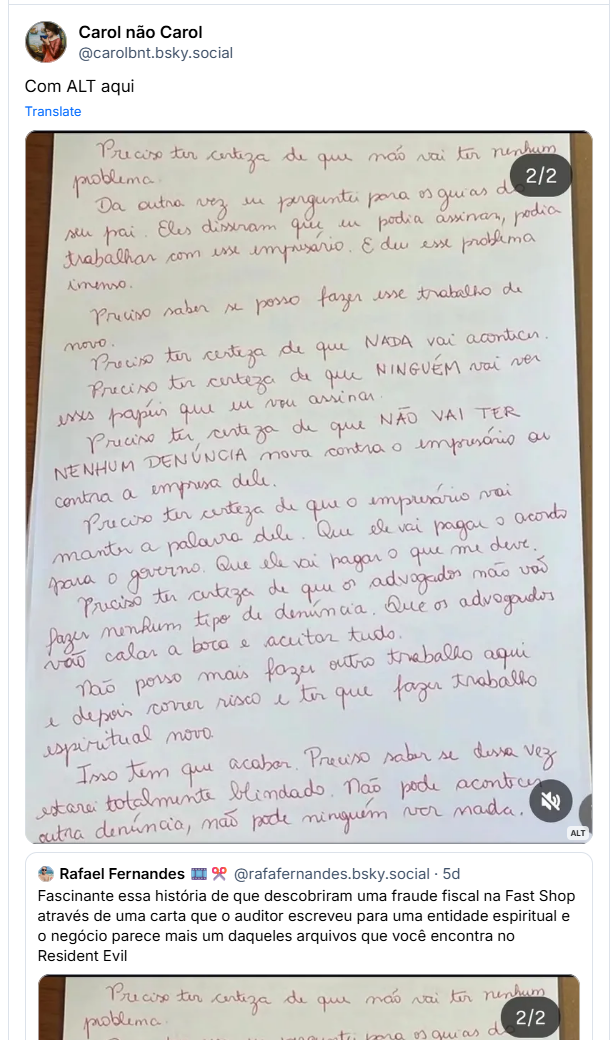 Carol não Carol
@carolbnt.bsky.social
Com ALT aqui
Translate
Preciso ter certeza de que não vai ter nenhum
2/2
problema.
Da outra vez eu perguntei para os guias do
seu pai. Eles disseram que eu podia assinar, podia
trabalhar com esse empresário. E deu esse problema
imenso.
Preciso saber se posso fazer esse trabalho de
novo.
Preciso ter certeza de que NADA vai acontecer.
Preciso ter certeza de que NINGUÉM vai ver
esses papéis que eu vou assinar.
Preciso ter certeza de que NÃO VAI TER
NENHUM DENÚNCIA nova contra o empresário ou
contra a empresa dele.
Preciso ter certeza de que o empresário vai
manter a palavra dele. Que ele vai pagar o acordo
para o governo. Que ele vai pagar o que me deve.
Preciso ter certeza de que os advogados não vão
fazer nenhum tipo de denúncia. Que os advogados
vão calar a boca e aceitar tudo.
Não posso mais fazer outro trabalho aqui
e depois correr risco e ter que fazer trabalho
espiritual novo.
Isso tem que acabar. Preciso saber se dessa vez
estarei totalmente blindado. Não pode acontecer
outra denúncia, não pode ninguém ver nada.
ALT
Rafael Fernandes @rafafernandes.bsky.social · 5d
Fascinante essa história de que descobriram uma fraude fiscal na Fast Shop
através de uma carta que o auditor escreveu para uma entidade espiritual e
o negócio parece mais um daqueles arquivos que você encontra no
Resident Evil
Preciso ter certeza de que não vai ter nenhum
2/2
problema.
perguntei para os guias do